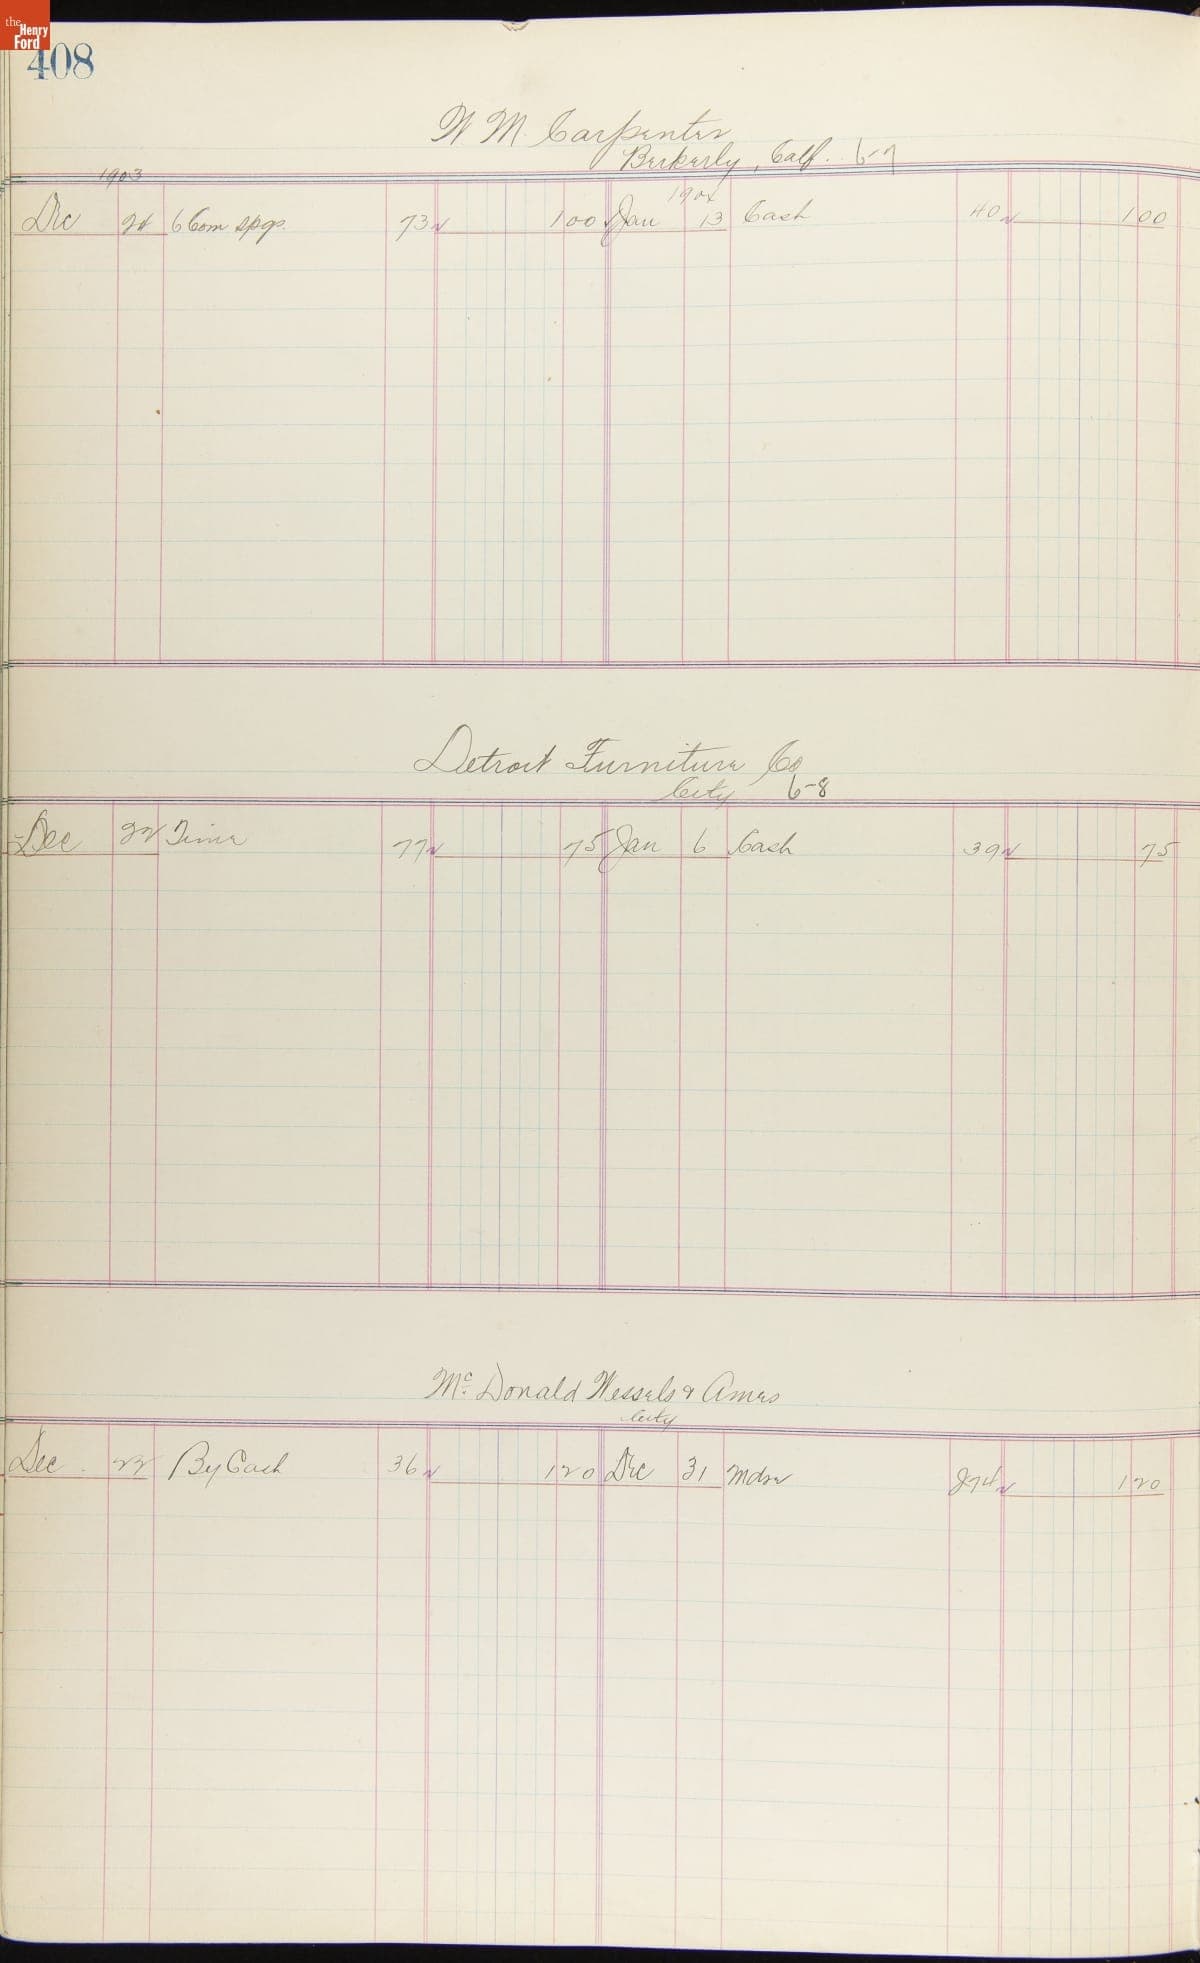 the Henry Ford
408
W M. Carpenter
Berkerly, Calf. 6-7
1903
1904
Dec 24 6 Com spgs. 73 100 Jan 13 Cash 40 100
Detroit Furniture Co
City 6-8
Dec 22 Time 77 75 Jan 6 Cash 39 75
Mc. Donald Wessels & Ames
City
Dec. 22 By Cash 36 120 Dec 31 Mdse 274 120